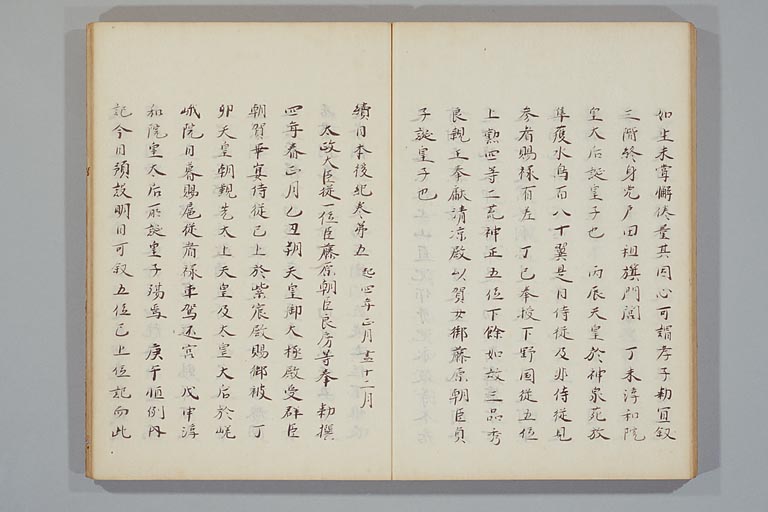 如生未嘗懈倦量其因心可謂孝子勅宜叙
三階終身免戸田租旗門閭　丁未淳和院
皇大后誕皇子也　丙辰天皇於神泉苑放
隼癈水鳥百八十翼是日侍従及非侍従見
参者賜禄有差　丁巳奉授下野国従五位
上勲四等二荒神正五位下餘如故三品秀
良親王奉献清凉殿以賀女御藤原朝臣貞
子誕皇子也
續日本後紀巻第五　起四年正月盡十二月
太政大臣従一位臣藤原朝臣良房等奉　勅撰
四年春正月乙丑朔天皇御大極殿受群臣
朝賀畢宴侍従已上於紫宸殿賜御被　丁
卯天皇朝覲先太上天皇及太皇大后於嵯
峨院日暮賜扈従者禄車駕還宮　戊申淳
和院皇太后所誕皇子湯焉　庚午恒例内
記今日預設明日可叙五位已上位記而此